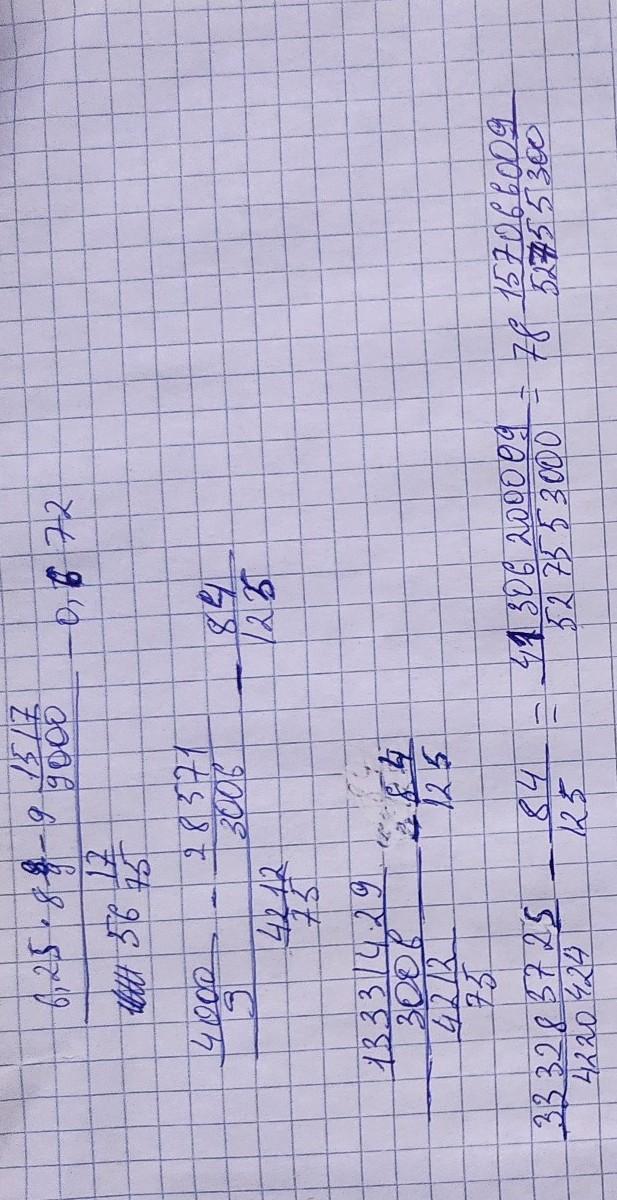 6,25 · 8 - 9 1517/9000
56 17/75 - 0,672
4000/9 - 28571/3006
4212/75 - 84/125
1333 1429/3006
4212/75 - 84/125
3332835725/4220424 - 84/125 = 41306200009/527553000 = 78 157066009/52755300